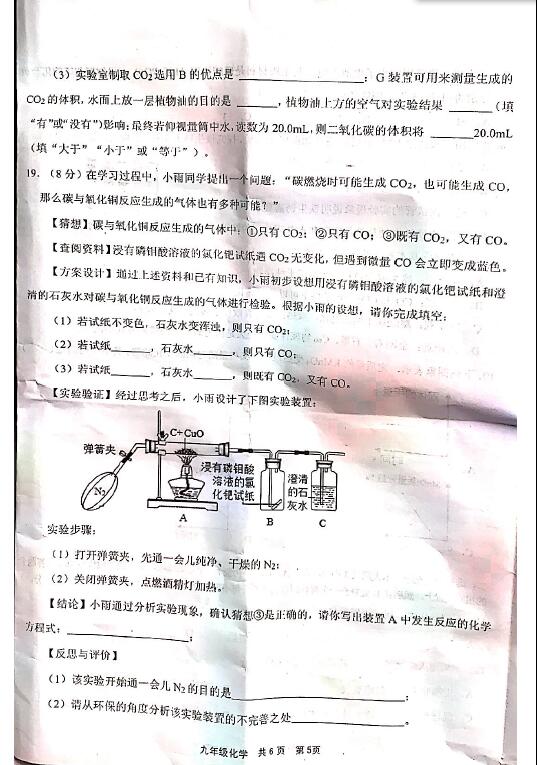 （3）实验室制取CO₂选用B的优点是 ______；G装置可用来测量生成的
CO₂的体积，水面上放一层植物油的目的是 ______，植物油上方的空气对实验结果 ______（填
“有”或“没有”)影响；最终若仰视量筒中水，读数为20.0mL，则二氧化碳的体积将 ______20.0mL
（填“大于”“小于”或“等于”）。
19.（8分）在学习过程中，小雨同学提出一个问题：“碳燃烧时可能生成CO₂，也可能生成CO，
那么碳与氧化铜反应生成的气体也有多种可能？”
【猜想】碳与氧化铜反应生成的气体中：①只有CO₂；②只有CO；③既有CO₂，又有CO。
【查阅资料】浸有磷钼酸溶液的氯化钯试纸遇CO₂无变化，但遇到微量CO会立即变成蓝色。
【方案设计】通过上述资料和已有知识，小雨初步设想用浸有磷钼酸溶液的氯化钯试纸和澄
清的石灰水对碳与氧化铜反应生成的气体进行检验。根据小雨的设想，请你完成填空：
（1）若试纸不变色，石灰水变浑浊，则只有CO₂；
（2）若试纸______，石灰水______，则只有CO；
（3）若试纸______，石灰水______，则既有CO₂，又有CO。
【实验验证】经过思考之后，小雨设计了下图实验装置：
C+CuO
弹簧夹
浸有磷钼酸
溶液的氯
化钯试纸
澄清
的石
灰水
N₂
A B C
实验步骤：
（1）打开弹簧夹，先通一会儿纯净、干燥的N₂；
（2）关闭弹簧夹，点燃酒精灯加热。
【结论】小雨通过分析实验现象，确认猜想③是正确的，请你写出装置A中发生反应的化学
方程式：______；
【反思与评价】
（1）该实验开始通一会儿N₂的目的是______；
（2）请从环保的角度分析该实验装置的不完善之处______。
九年级化学 共6页 第5页